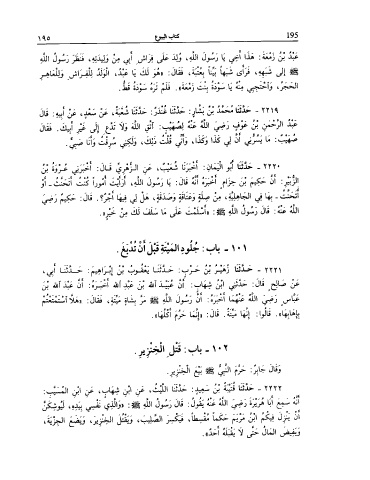 195 كتاب البيوع ١٩٥
عَبْدُ بْنُ زَمْعَةَ: هَذَا أَخِي يَا رَسُولَ اللَّهِ، وُلِدَ عَلَى فِرَاشِ أَبِي مِنْ وَلِيدَتِهِ، فَنَظَرَ رَسُولُ اللَّهِ
ﷺ إِلَى شَبَهِهِ، فَرَأَى شَبَهًا بَيِّنًا بِعُتْبَةَ، فَقَالَ: «هُوَ لَكَ يَا عَبْدُ، الْوَلَدُ لِلْفِرَاشِ وَلِلْعَاهِرِ
الْحَجَرُ، وَاحْتَجِبِي مِنْهُ يَا سَوْدَةُ بِنْتَ زَمْعَةَ». فَلَمْ تَرَهُ سَوْدَةُ قَطُّ.
٢٢١٩ - حَدَّثَنَا مُحَمَّدُ بْنُ بَشَّارٍ: حَدَّثَنَا غُنْدَرٌ: حَدَّثَنَا شُعْبَةُ، عَنْ سَعْدٍ، عَنْ أَبِيهِ: قَالَ
عَبْدُ الرَّحْمَنِ بْنُ عَوْفٍ رَضِيَ اللَّهُ عَنْهُ لِصُهَيْبٍ: اتَّقِ اللَّهَ وَلَا تَدَّعِ إِلَى غَيْرِ أَبِيكَ. فَقَالَ
صُهَيْبٌ: مَا يَسُرُّنِي أَنَّ لِي كَذَا وَكَذَا، وَأَنِّي قُلْتُ ذَلِكَ، وَلَكِنِّي سُرِقْتُ وَأَنَا صَبِيٌّ.
٢٢٢٠ - حَدَّثَنَا أَبُو الْيَمَانِ: أَخْبَرَنَا شُعَيْبٌ، عَنِ الزُّهْرِيِّ قَالَ: أَخْبَرَنِي عُرْوَةُ بْنُ
الزُّبَيْرِ: أَنَّ حَكِيمَ بْنَ حِزَامٍ أَخْبَرَهُ أَنَّهُ قَالَ: يَا رَسُولَ اللَّهِ، أَرَأَيْتَ أُمُورًا كُنْتُ أَتَحَنَّثُ - أَوْ
أَتَحَنَّتُ - بِهَا فِي الْجَاهِلِيَّةِ، مِنْ صِلَةٍ وَعَتَاقَةٍ وَصَدَقَةٍ، هَلْ لِي فِيهَا أَجْرٌ؟. قَالَ حَكِيمٌ رَضِيَ
اللَّهُ عَنْهُ: قَالَ رَسُولُ اللَّهِ ﷺ: «أَسْلَمْتَ عَلَى مَا سَلَفَ لَكَ مِنْ خَيْرٍ».
١٠١ - باب: جُلُودِ المَيْتَةِ قَبْلَ أَنْ تُدْبَغَ.
٢٢٢١ - حَدَّثَنَا زُهَيْرُ بْنُ حَرْبٍ: حَدَّثَنَا يَعْقُوبُ بْنُ إِبْرَاهِيمَ: حَدَّثَنَا أَبِي،
عَنْ صَالِحٍ قَالَ: حَدَّثَنِي ابْنُ شِهَابٍ: أَنَّ عُبَيْدَ اللَّهِ بْنَ عَبْدِ اللَّهِ أَخْبَرَهُ: أَنَّ عَبْدَ اللَّهِ بْنَ
عَبَّاسٍ رَضِيَ اللَّهُ عَنْهُمَا أَخْبَرَهُ: أَنَّ رَسُولَ اللَّهِ ﷺ مَرَّ بِشَاةٍ مَيِّتَةٍ، فَقَالَ: «هَلَّا اسْتَمْتَعْتُمْ
بِإِهَابِهَا». قَالُوا: إِنَّهَا مَيِّتَةٌ. قَالَ: «إِنَّمَا حَرُمَ أَكْلُهَا».
١٠٢ - باب: قَتْلِ الْخِنْزِيرِ.
وَقَالَ جَابِرٌ: حَرَّمَ النَّبِيُّ ﷺ بَيْعَ الْخِنْزِيرِ.
٢٢٢٢ - حَدَّثَنَا قُتَيْبَةُ بْنُ سَعِيدٍ: حَدَّثَنَا اللَّيْثُ، عَنِ ابْنِ شِهَابٍ، عَنِ ابْنِ المُسَيَّبِ:
أَنَّهُ سَمِعَ أَبَا هُرَيْرَةَ رَضِيَ اللَّهُ عَنْهُ يَقُولُ: قَالَ رَسُولُ اللَّهِ ﷺ: «وَالَّذِي نَفْسِي بِيَدِهِ، لَيُوشِكَنَّ
أَنْ يَنْزِلَ فِيكُمُ ابْنُ مَرْيَمَ حَكَمًا مُقْسِطًا، فَيَكْسِرَ الصَّلِيبَ، وَيَقْتُلَ الْخِنْزِيرَ، وَيَضَعَ الْجِزْيَةَ،
وَيَفِيضَ المَالُ حَتَّى لَا يَقْبَلَهُ أَحَدٌ».